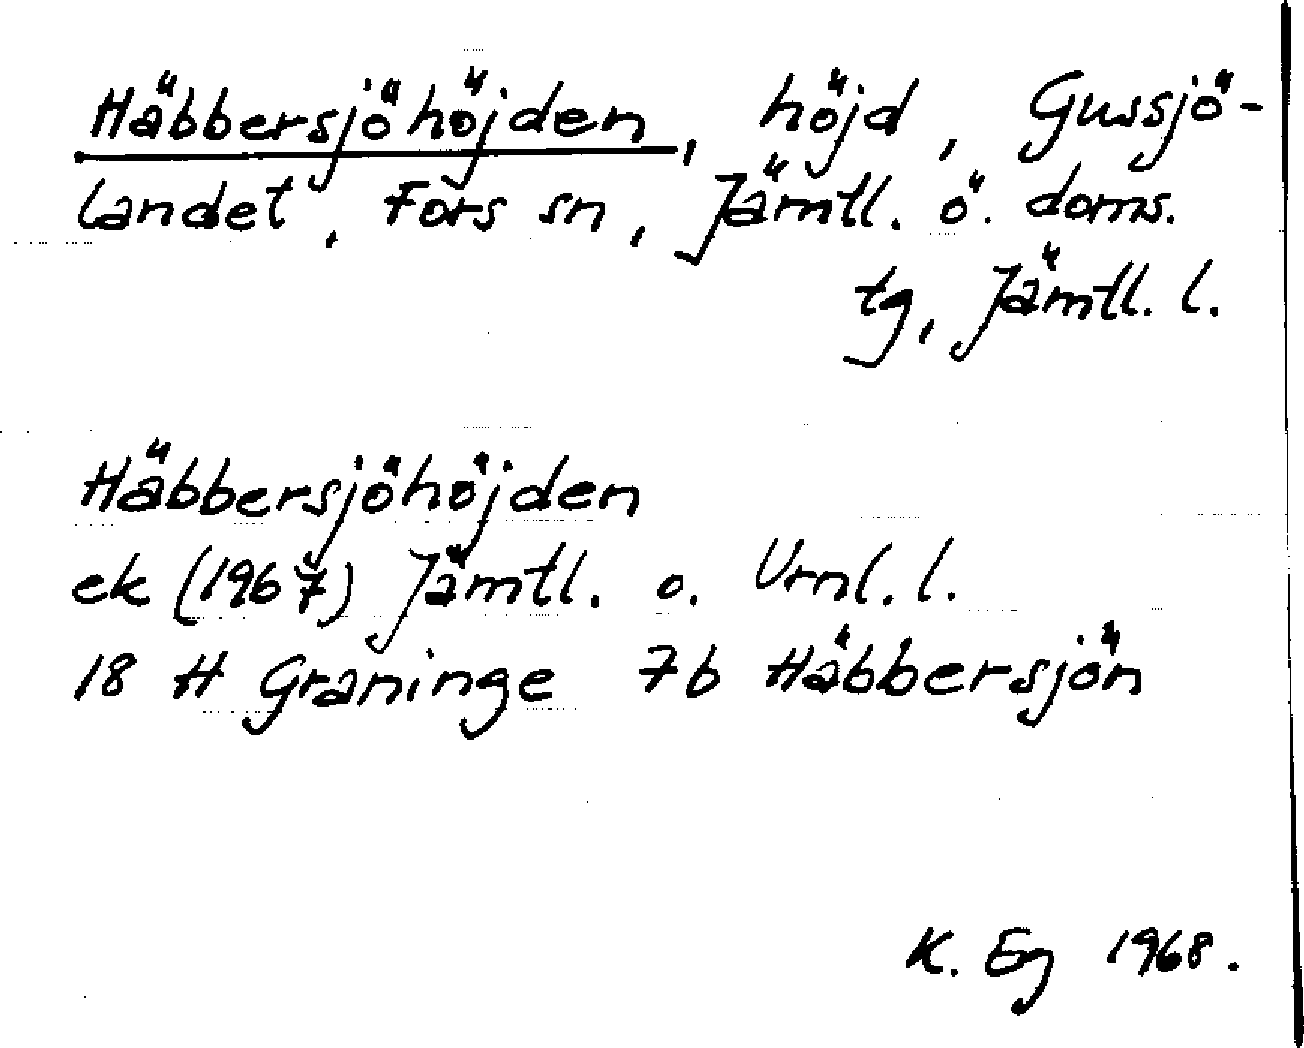 Häbbersjöhöjden, höjd, Gussjö-
landet, Fors sn, Jämtl. ö. doms.
tg, Jämtl. l.
Häbbersjöhöjden
ek (1967) Jämtl. o. Vrnl. l.
18 H Graninge 7b Häbbersjön
K. Eg 1968.